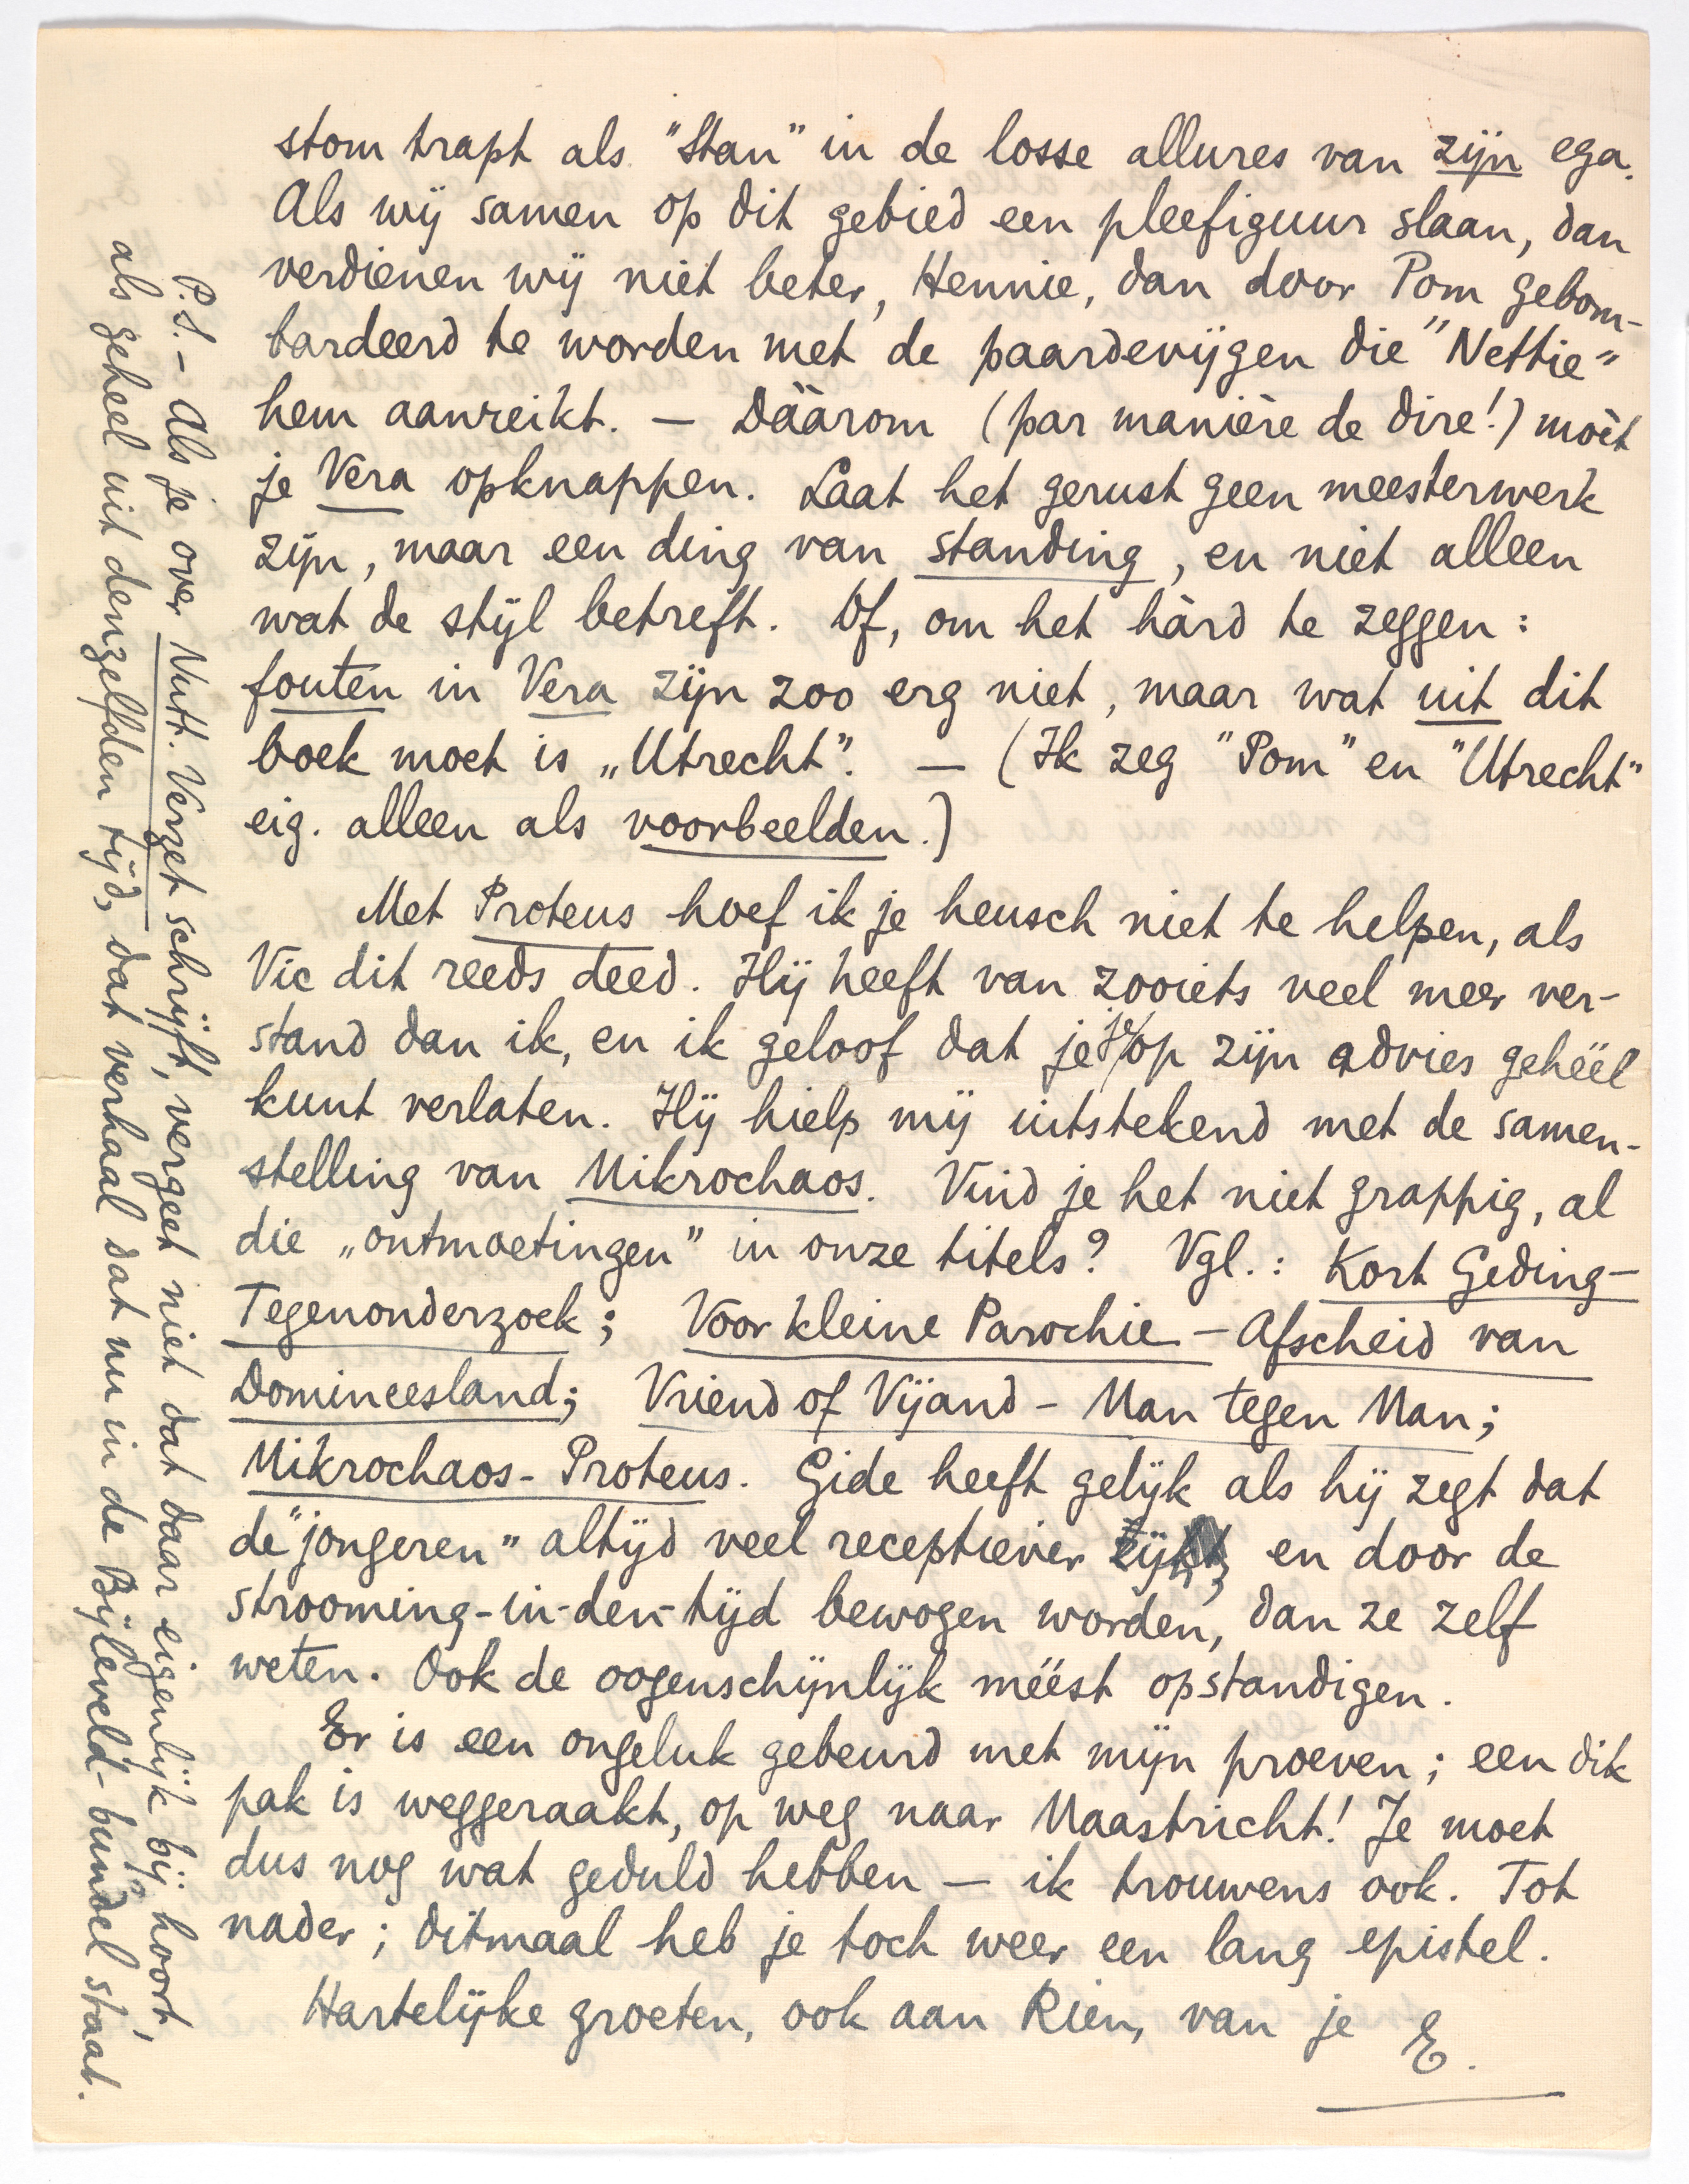 stom trapt als "Stan" in de losse allures van zijn ega.
Als wij samen op dit gebied een pleefiguur slaan, dan
verdienen wij niet beter, Hennie, dan door Pom gebom-
bardeerd te worden met de paardevijgen die "Nettie"
hem aanreikt. — Dáárom (par manière de dire!) moèt
je Vera opknappen. Laat het gerust geen meesterwerk
zijn, maar een ding van standing, en niet alleen
wat de stijl betreft. Of, om het hàrd te zeggen:
fouten in Vera zijn zoo erg niet, maar wat uit dit
boek moet is „Utrecht". — (Ik zeg "Pom" en "Utrecht"
eig. alleen als voorbeelden.)
Met Proteus hoef ik je heusch niet te helpen, als
Vic dit reeds deed. Hij heeft van zooiets veel meer ver-
stand dan ik, en ik geloof dat je je op zijn advies gehéél
kunt verlaten. Hij hielp mij uitstekend met de samen-
stelling van Mikrochaos. Vind je het niet grappig, al
die „ontmoetingen" in onze titels? Vgl.: Kort Geding-
Tegenonderzoek; Voor kleine Parochie - Afscheid van
Domineesland; Vriend of Vijand - Man tegen Man;
Mikrochaos - Proteus. Gide heeft gelijk als hij zegt dat
de "jongeren" altijd veel receptiever zijn, en door de
strooming-in-den-tijd bewogen worden, dan ze zelf
weten. Ook de oogenschijnlijk méést opstandigen.
Er is een ongeluk gebeurd met mijn proeven; een dik
pak is weggeraakt, op weg naar Maastricht! Je moet
dus nog wat geduld hebben — ik trouwens ook. Tot
nader; ditmaal heb je toch weer een lang epistel.
Hartelijke groeten, ook aan Rien, van je E.
P.S. - Als je over Nutt. Verzet schrijft, vergeet niet dat daar eigenlijk bij hoort,
als geheel uit denzelfden tijd, dat verhaal dat nu in de Bijleveld-bundel staat.